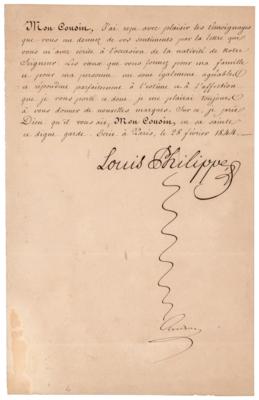 Mon Cousin, J'ai reçu avec plaisir les témoignages
que vous me donnez de vos sentimens par la lettre que
vous m'avez écrite à l'occasion de la nativité de Notre
Seigneur. Les vœux que vous formez pour ma famille
et pour ma personne me sont également agréables
et répondent parfaitement à l'estime et à l'affection
que je vous porte et dont je me plairai toujours
à vous donner de nouvelles marques. Sur ce, je prie
Dieu qu'il vous ait, Mon Cousin, en sa sainte
et digne garde. Écrit à Paris, le 28 février 1844.
Louis Philippe